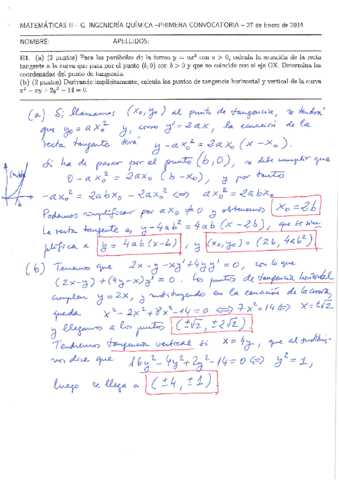 MATEMÁTICAS II – G. INGENIERÍA QUÍMICA –PRIMERA CONVOCATORIA – 27 de Enero de 2014
NOMBRE: APELLIDOS:
E1. (a) (3 puntos) Para las parábolas de la forma y = ax² con a > 0, calcula la ecuación de la recta
tangente a la curva que pasa por el punto (b, 0) con b > 0 y que no coincide con el eje OX. Determina las
coordenadas del punto de tangencia.
(b) (2 puntos) Derivando implícitamente, calcula los puntos de tangencia horizontal y vertical de la curva
x² − xy + 2y² − 14 = 0.
(a) Si llamamos (x₀, y₀) al punto de tangencia, se tendrá
que y₀ = ax₀² y, como y' = 2ax, la ecuación de la
recta tangente será y - ax₀² = 2ax₀ (x - x₀).
Si ha de pasar por el punto (b, 0), se debe cumplir que
0 - ax₀² = 2ax₀ (b - x₀), y por tanto
-ax₀² = 2abx₀ - 2ax₀² ⇔ ax₀² = 2abx₀
Podemos simplificar por ax₀ ≠ 0 y obtenemos x₀ = 2b
La recta tangente es y - 4ab² = 4ab (x - 2b), que se sim-
plifica a y = 4ab (x-b), y (x₀, y₀) = (2b, 4ab²)
(b) Tenemos que 2x - y - xy' + 4yy' = 0, con lo que
(2x-y) + (4y-x)y' = 0. Los puntos de tangencia horizontal
cumplen y = 2x, y sustituyendo en la ecuación de la curva
queda x² - 2x² + 8x² - 14 = 0 ⇔ 7x² = 14 ⇔ x = ±√2
y llegamos a los puntos (±√2, ±2√2).
Tendremos tangencia vertical si x = 4y, que al sustitui-
mos dice que 16y² - 4y² + 2y² - 14 = 0 ⇔ y² = 1,
luego se llega a (±4, ±1)